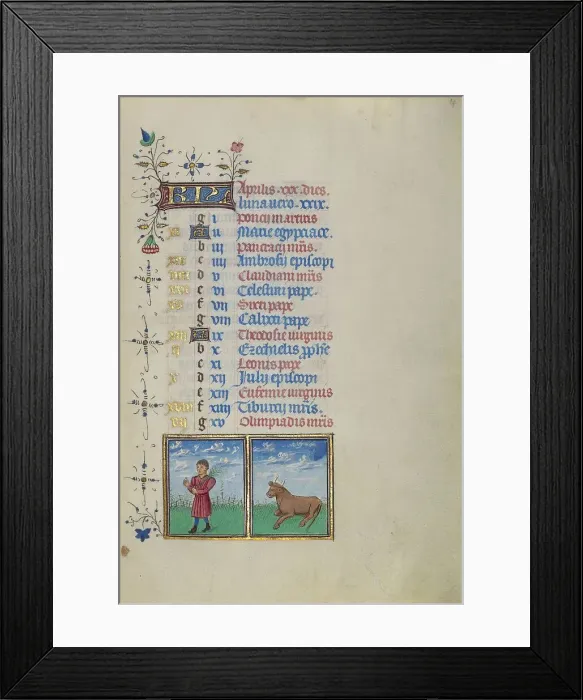 KL Aprilis .xxx. dies.
luna vero .xxix.
g i poncij martiris
A ii Marie egypciace
b iii pancracij mr̃is.
c iiii Ambrosij episcopi
d v Claudiani mr̃is
e vi Celestini pape.
f vii Sixti pape
g viii Calixti pape
A ix Theodosie virginis
b x Ezechielis ꝓphe
c xi Leonis pape
x d xii Julij episcopi
e xiii Eufemie virginis
xviii f xiiii Tiburcij mr̃is.
vii g xv Olimpiadis mr̃is